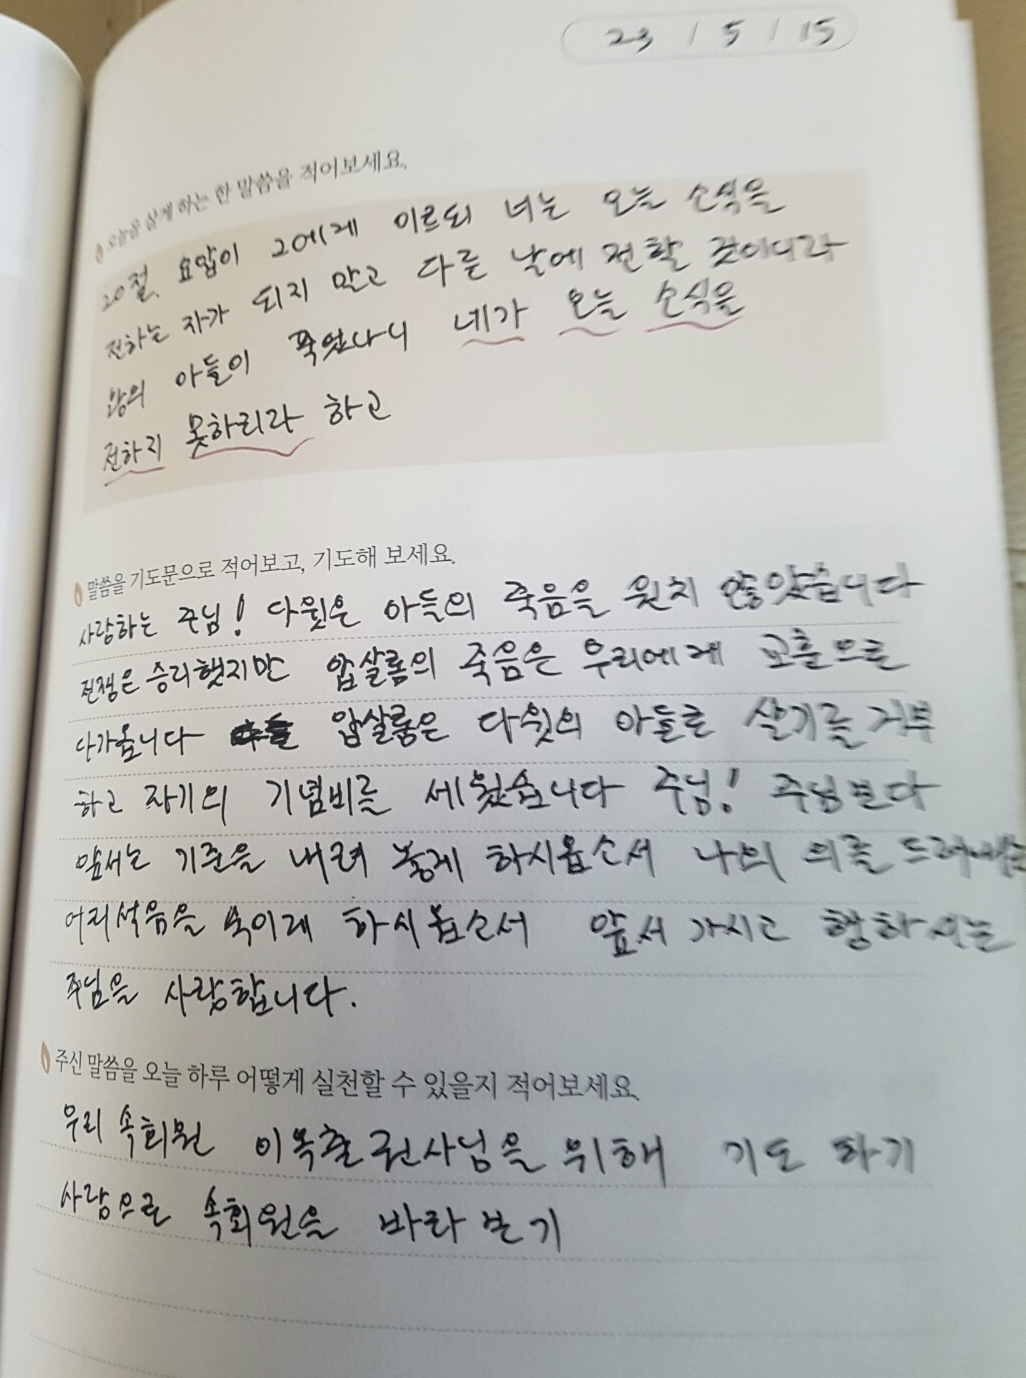 23 / 5 / 15
오늘을 살게 하는 한 말씀을 적어보세요.
20절. 요압이 그에게 이르되 너는 오늘 소식을
전하는 자가 되지 말고 다른 날에 전할 것이니라
왕의 아들이 죽었나니 네가 오늘 소식을
전하지 못하리라 하고
말씀을 기도문으로 적어보고, 기도해 보세요.
사랑하는 주님! 다윗은 아들의 죽음을 원치 않았습니다
전쟁은 승리했지만 압살롬의 죽음은 우리에게 교훈으로
다가옵니다 압살롬은 다윗의 아들로 살기를 거부
하고 자기의 기념비를 세웠습니다 주님! 주님보다
앞서는 기준을 내려 놓게 하시옵소서 나의 의를 드러내는
어리석음을 죽이게 하시옵소서 앞서 가시고 행하시는
주님을 사랑합니다.
주신 말씀을 오늘 하루 어떻게 실천할 수 있을지 적어보세요.
우리 속회원 권사님을 위해 기도 하기
사랑으로 속회원을 바라 보기